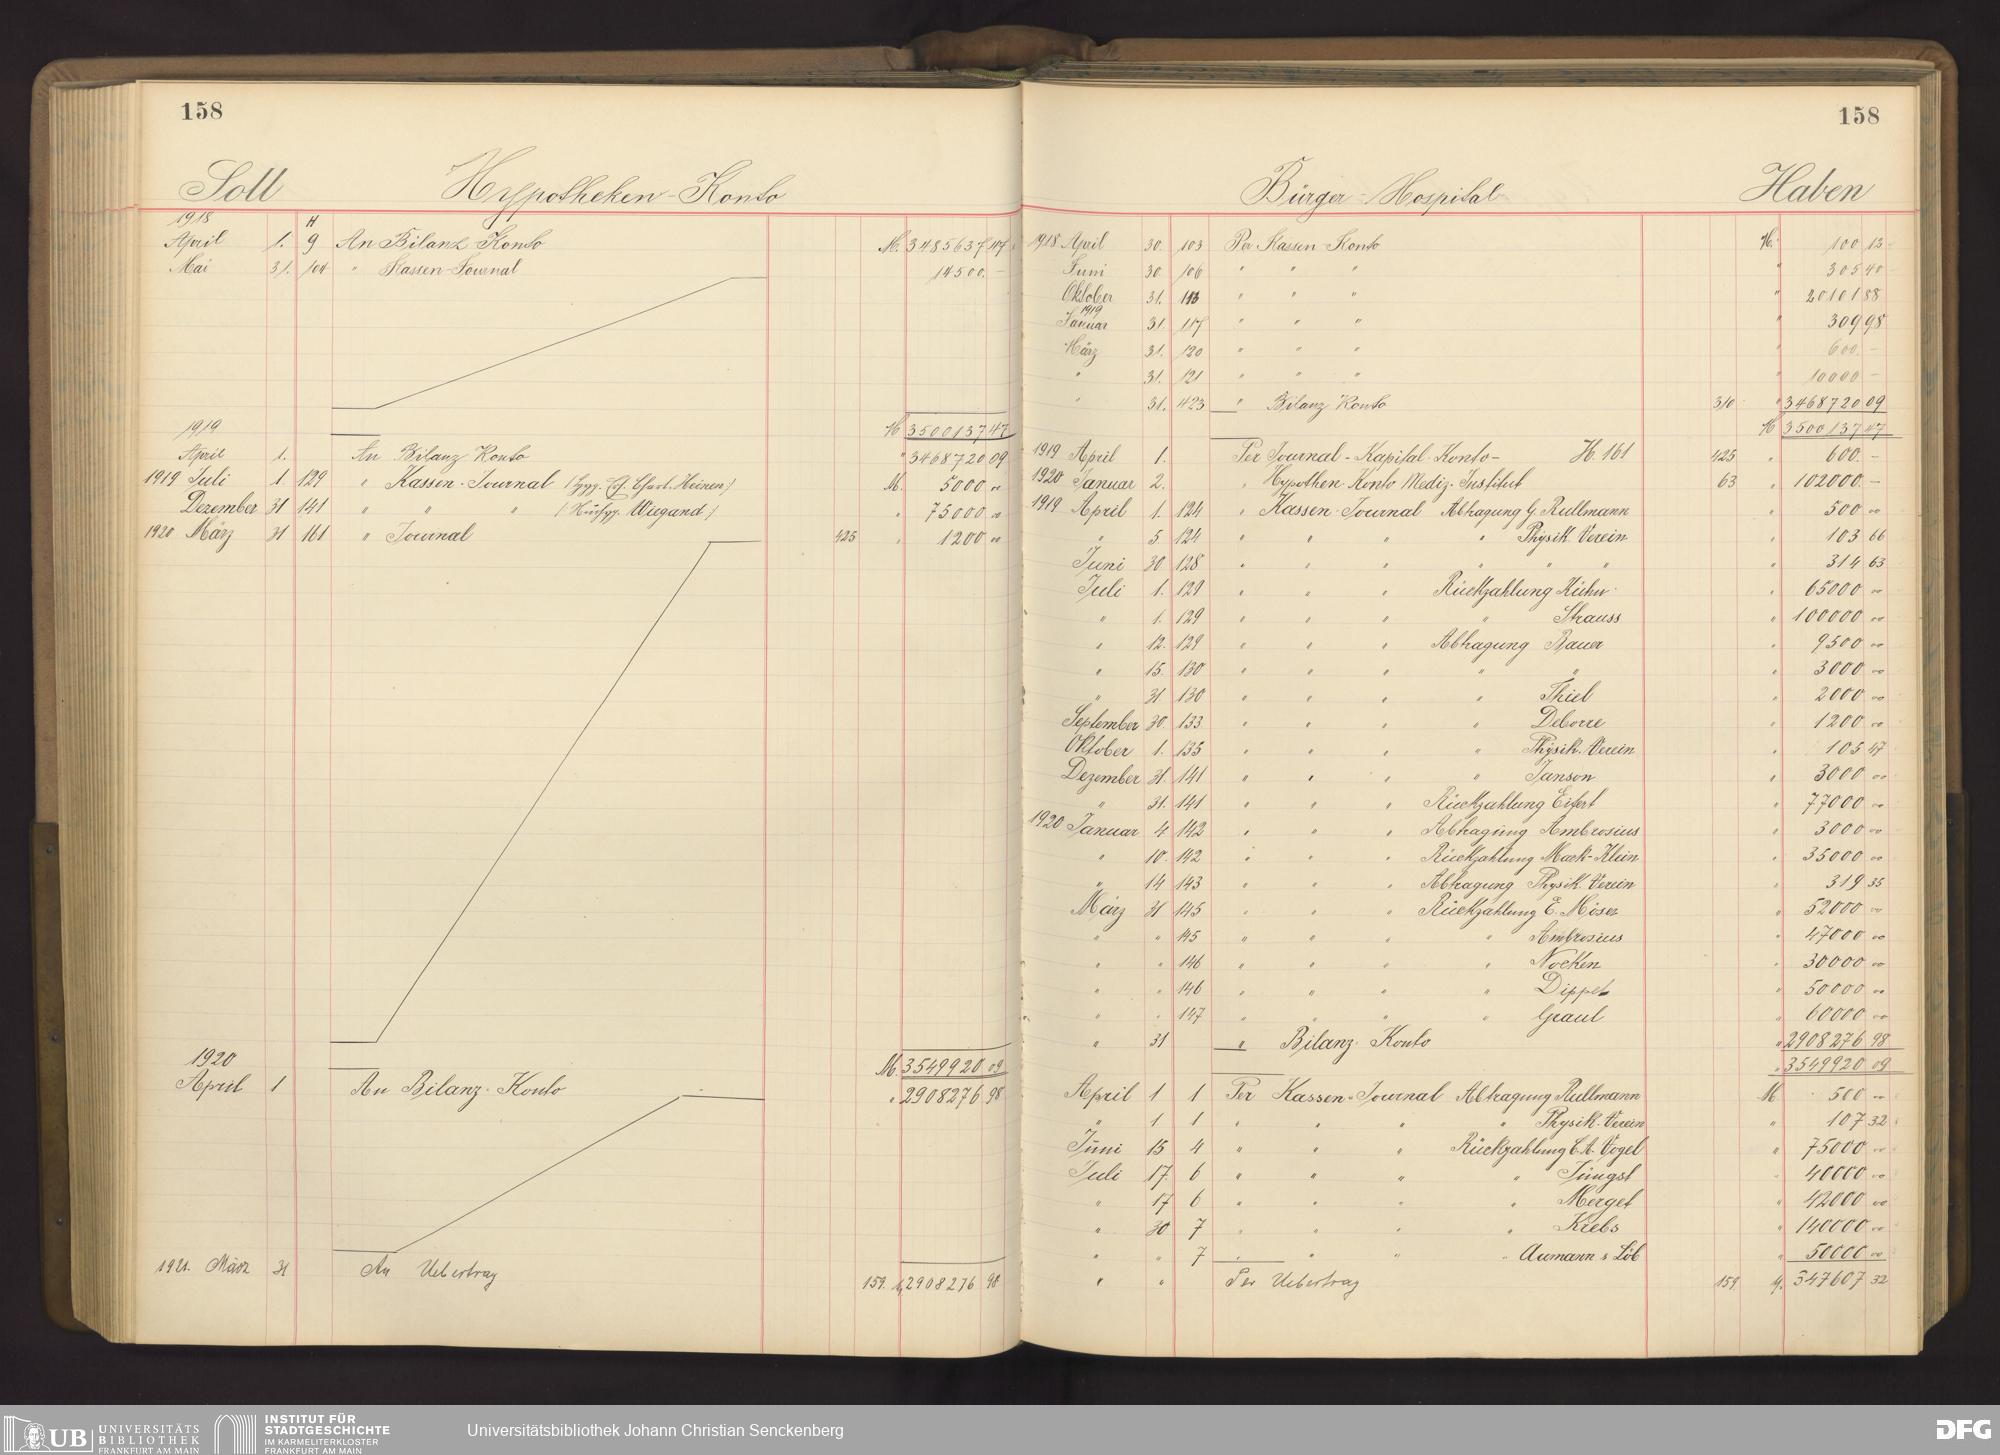 158
Soll Hypotheken-Konto
1918 H
April 1. 9 An Bilanz-Konto M. 3485637 47
Mai 31. 104 " Kassen-Journal 14500. –
M 3500137 47
1919
April 1. An Bilanz Konto " 3468720 09
1919 Juli 1. 129 " Kassen-Journal Heinen M. 5000 00
Dezember 31 141 " " " Wiegand " 75000 00
1920 März 31 161 " Journal 425 " 1200 00
M. 3549920 09
1920
April 1 An Bilanz-Konto " 2908276 98
1921. März 31 An Uebertrag 159. M. 2908276 98
158
Bürger-Hospital Haben
1918 April 30. 103 Per Kassen-Konto M. 100 13
Juni 30. 106 " " " " 305 40
Oktober 31. 113 " " " " 20101 88
1919
Januar 31. 117 " " " " 309 98
März 31. 120 " " " " 600. –
" 31. 121 " " " " 10000 –
" 31. 423 " Bilanz Konto 310 " 3468720 09
M 3500137 47
1919 April 1. Per Journal-Kapital-Konto- H. 161 425 " 600. –
1920 Januar 2. " Hypothen-Konto Mediz. Institut 63 " 102000. –
1919 April 1. 124 " Kassen-Journal Abtragung G. Rullmann 500 00
" 5 124 " " " " Physik. Verein " 103 66
Juni 30 128 " " " " " " " 314 63
Juli 1. 129 " " " Rückzahlung Kühn " 65000 00
" 1. 129 " " " " Strauss " 100000 00
" 12. 129 " " " Abtragung Bauer " 9500 00
" 15. 130 " " " " " " 3000 00
" 31 130 " " " " Thiel " 2000 00
September 30 133 " " " " Deborre " 1200 00
Oktober 1. 135 " " " " Physik. Verein " 105 47
Dezember 31 141 " " " " Janson " 3000 00
" 31. 141 " " " Rückzahlung Eifert " 77000 00
1920 Januar 4 142 " " " Abtragung Ambrosius " 3000 00
" 10. 142 " " " Rückzahlung Mark-Klein " 35000 00
" 14 143 " " " Abtragung Physik. Verein " 319 35
März 31 145 " " " Rückzahlung E. Möser " 52000 00
" " 145 " " " " Ambrosius " 47000 00
" " 146 " " " " Nocken " 30000 00
" " 146 " " " " Dippel " 50000 00
" " 147 " " " " Graul " 60000 00
" 31 " Bilanz-Konto " 2908276 98
" 3549920 09
April 1 1 Per Kassen-Journal Abtragung Rullmann M. 500 00
" 1 1 " " " " Physik. Verein " 107 32
Juni 15 4 " " " Rückzahlung C. A. Vogel " 75000 00
Juli 17. 6 " " " " Jüngst 40000 00
" 17 6 " " " " Merget " 42000 00
" 30 7 " " " " Krebs " 140000 00
" " 7 " " " " Aumann & Löb " 50000 00
" " Per Uebertrag 159 M. 347607 32
UB UNIVERSITÄTS
BIBLIOTHEK
FRANKFURT AM MAIN
INSTITUT FÜR
STADTGESCHICHTE
IM KARMELITERKLOSTER
FRANKFURT AM MAIN
Universitätsbibliothek Johann Christian Senckenberg
DFG